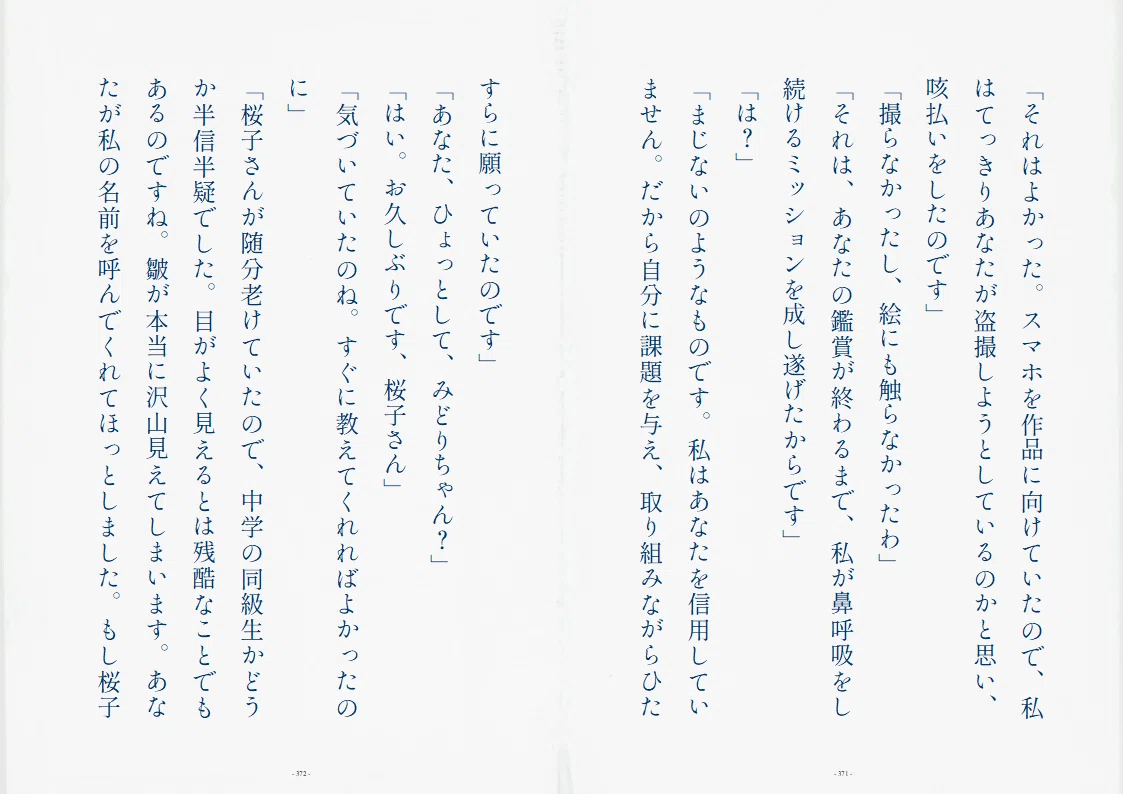 「それはよかった。スマホを作品に向けていたので、私
はてっきりあなたが盗撮しようとしているのかと思い、
咳払いをしたのです」
「撮らなかったし、絵にも触らなかったわ」
「それは、あなたの鑑賞が終わるまで、私が鼻呼吸をし
続けるミッションを成し遂げたからです」
「は？」
「まじないのようなものです。私はあなたを信用してい
ません。だから自分に課題を与え、取り組みながらひた
- 371 -
すらに願っていたのです」
「あなた、ひょっとして、みどりちゃん？」
「はい。お久しぶりです、桜子さん」
「気づいていたのね。すぐに教えてくれればよかったの
に」
「桜子さんが随分老けていたので、中学の同級生かどう
か半信半疑でした。目がよく見えるとは残酷なことでも
あるのですね。皺が本当に沢山見えてしまいます。あな
たが私の名前を呼んでくれてほっとしました。もし桜子
- 372 -